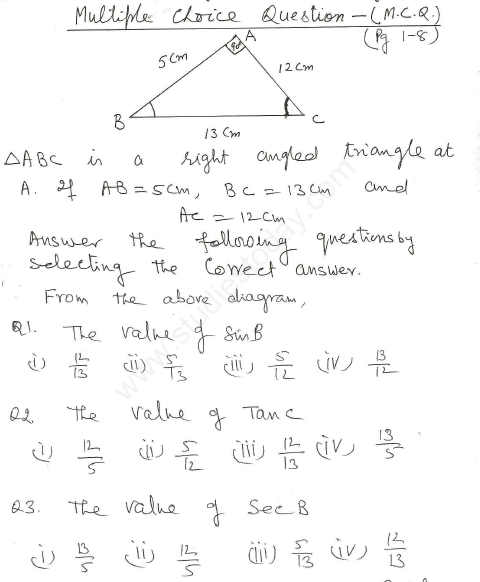 Multiple Choice Question - (M.C.Q.)
(Pg 1-8)
A
90°
5cm
12cm
B
C
13cm
△ABC is a right angled triangle at
A. If AB = 5cm, BC = 13cm and
AC = 12cm
Answer the following questions by
selecting the correct answer.
From the above diagram,
Q1. The value of Sin B
(i) 12/13 (ii) 5/13 (iii) 5/12 (iv) 13/12
Q2 The value of Tan C
(i) 12/5 (ii) 5/12 (iii) 12/13 (iv) 13/5
Q3. The value of Sec B
(i) 13/5 (ii) 12/5 (iii) 5/13 (iv) 12/13
www.studiestoday.com